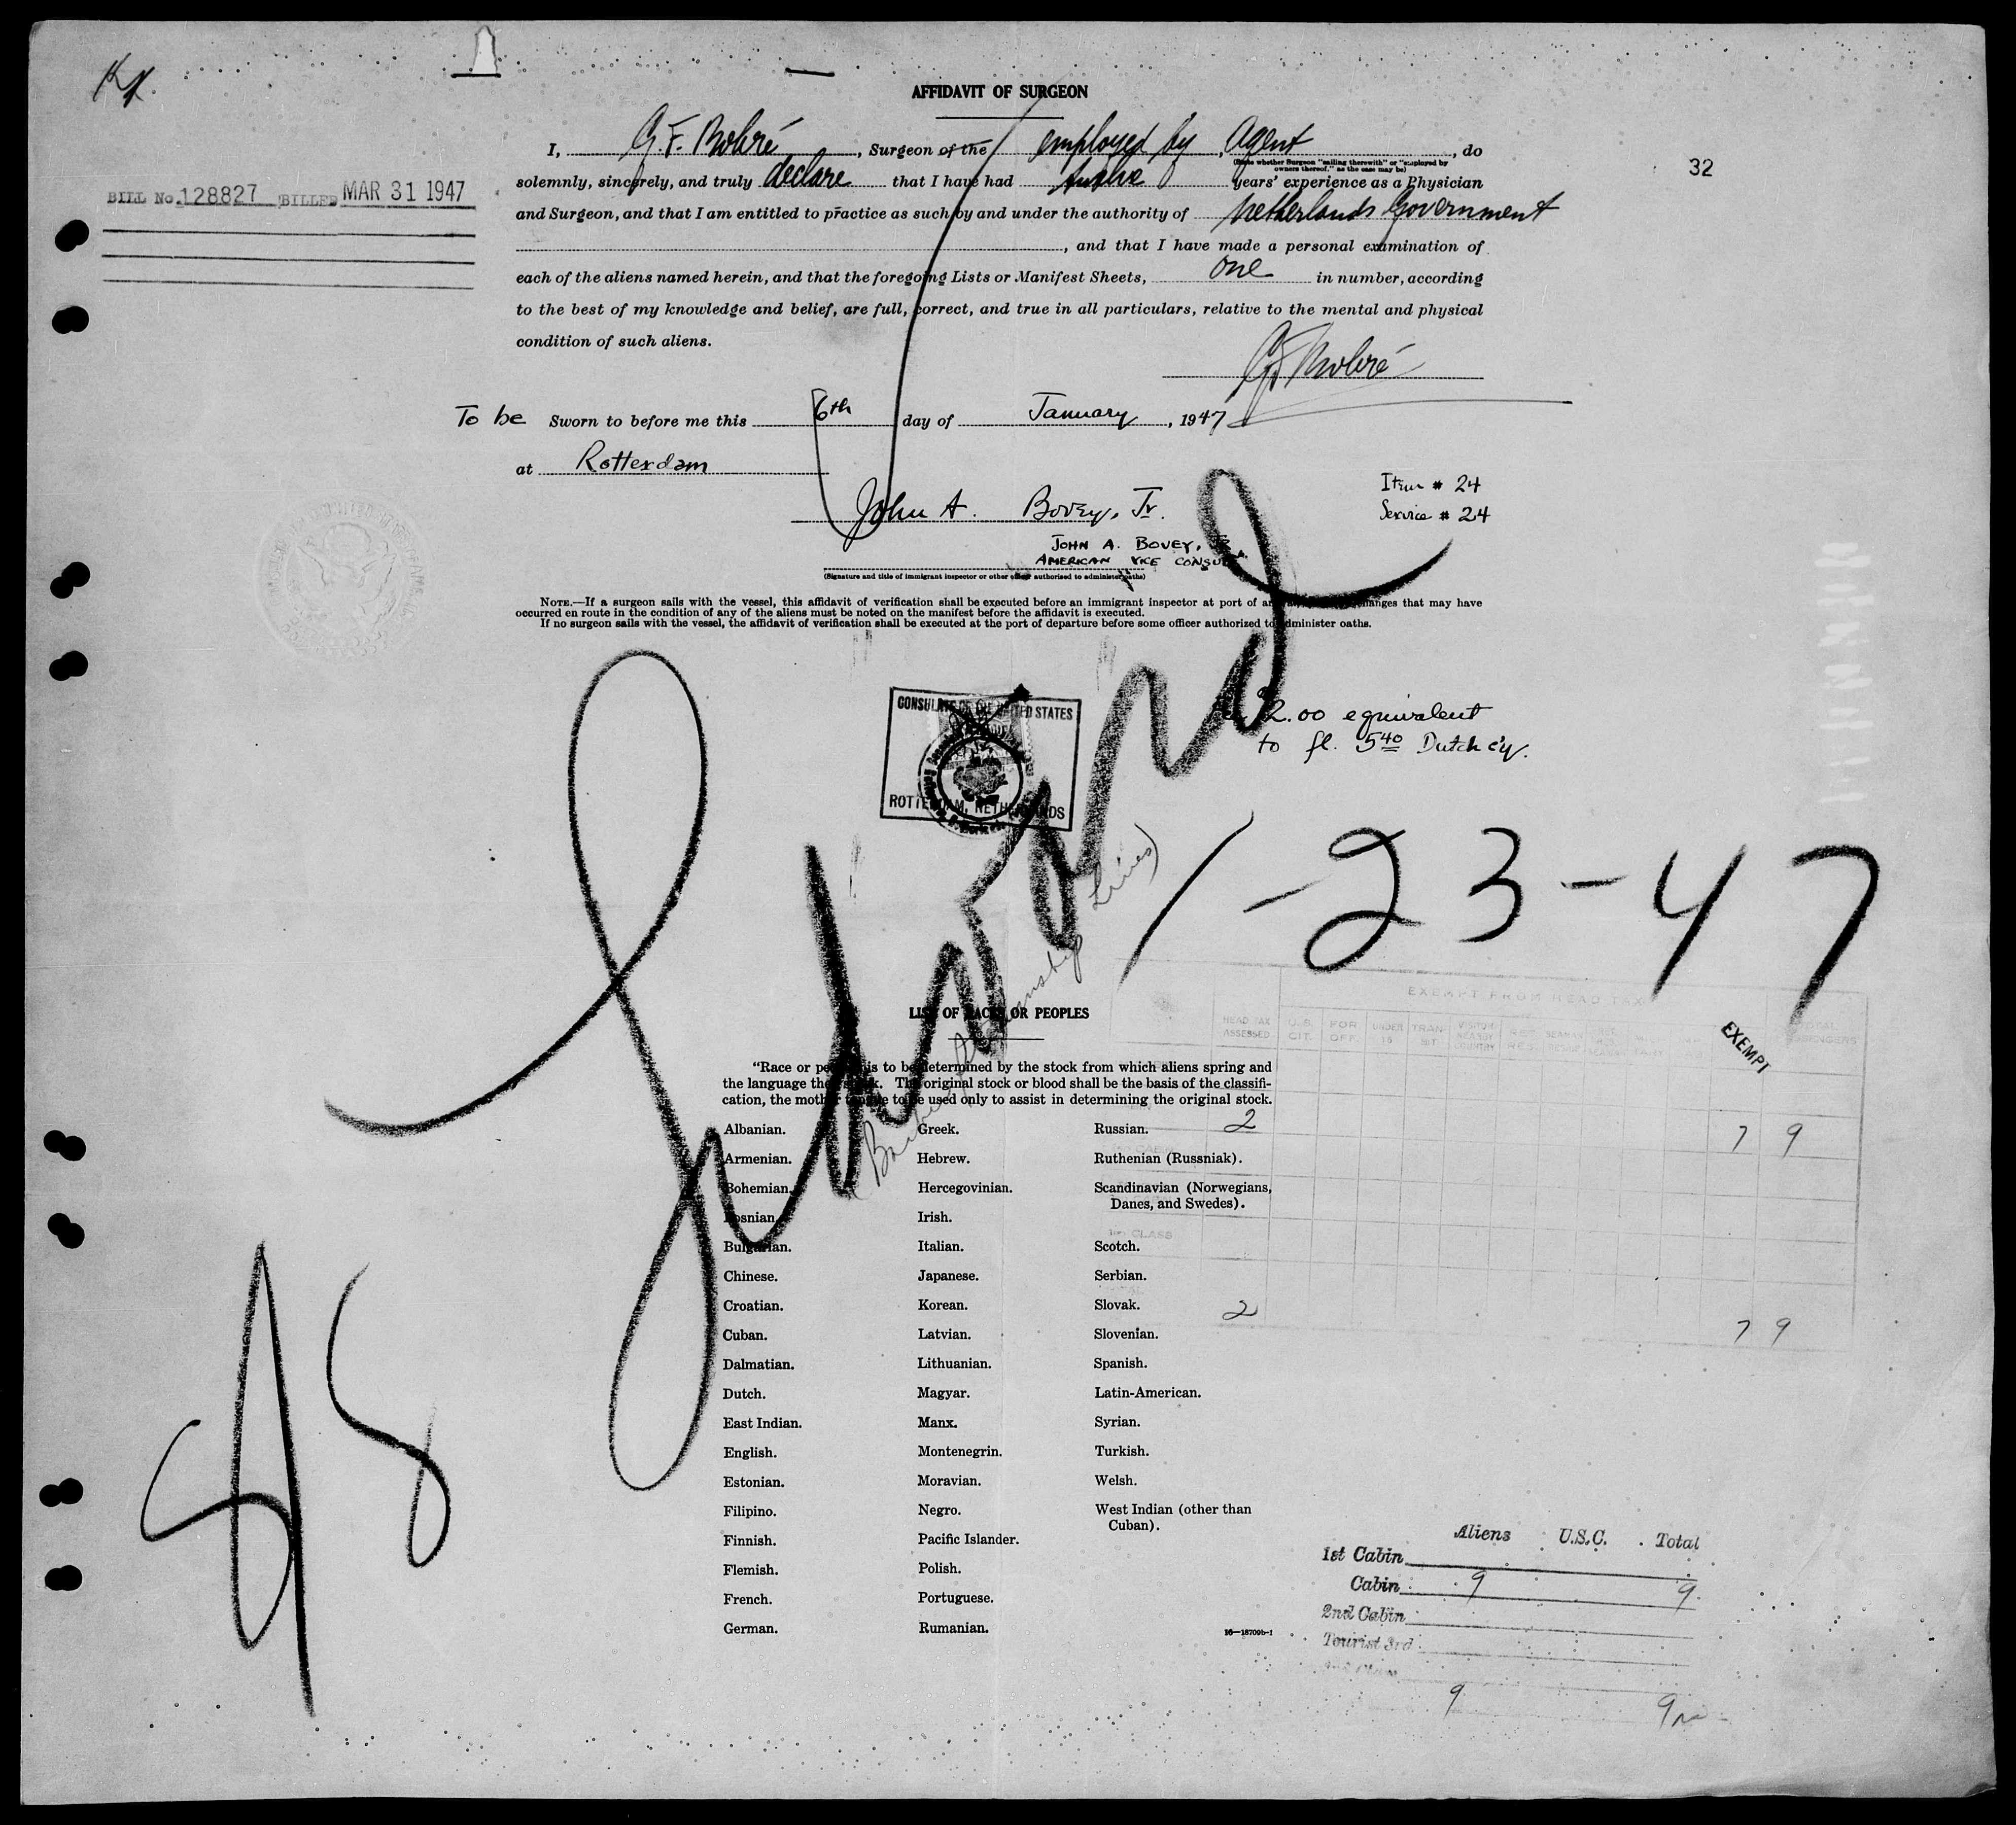 AFFIDAVIT OF SURGEON
I, G. F. , Surgeon of the employed by , Agent , do
(State whether Surgeon "sailing therewith" or "employed by owners thereof," as the case may be)
solemnly, sincerely, and truly declare that I have had twelve years' experience as a Physician
32
BILL No. 128827 BILLED MAR 31 1947
and Surgeon, and that I am entitled to practice as such by and under the authority of Netherlands Government
, and that I have made a personal examination of
each of the aliens named herein, and that the foregoing Lists or Manifest Sheets, one in number, according
to the best of my knowledge and belief, are full, correct, and true in all particulars, relative to the mental and physical
condition of such aliens.
To be Sworn to before me this 6th day of January, 1947
at Rotterdam
John A. Bovey, Jr.
Item # 24
Service # 24
JOHN A. BOVEY, JR
AMERICAN VICE CONSUL
(Signature and title of immigrant inspector or other officer authorized to administer oaths)
NOTE.—If a surgeon sails with the vessel, this affidavit of verification shall be executed before an immigrant inspector at port of arrival. Changes that may have
occurred en route in the condition of any of the aliens must be noted on the manifest before the affidavit is executed.
If no surgeon sails with the vessel, the affidavit of verification shall be executed at the port of departure before some officer authorized to administer oaths.
CONSULATE OF THE UNITED STATES
ROTTERDAM, NETHERLANDS
2.00 equivalent
to fl. 5.40 Dutch c'y.
1-23-47
Lines)
LIST OF RACES OR PEOPLES
"Race or people" is to be determined by the stock from which aliens spring and
the language they speak. The original stock or blood shall be the basis of the classifi-
cation, the mother tongue to be used only to assist in determining the original stock.
Albanian.
Armenian.
Bohemian.
Bosnian.
Bulgarian.
Chinese.
Croatian.
Cuban.
Dalmatian.
Dutch.
East Indian.
English.
Estonian.
Filipino.
Finnish.
Flemish.
French.
German.
Greek.
Hebrew.
Hercegovinian.
Irish.
Italian.
Japanese.
Korean.
Latvian.
Lithuanian.
Magyar.
Manx.
Montenegrin.
Moravian.
Negro.
Pacific Islander.
Polish.
Portuguese.
Rumanian.
Russian.
Ruthenian (Russniak).
Scandinavian (Norwegians,
Danes, and Swedes).
Scotch.
Serbian.
Slovak.
Slovenian.
Spanish.
Latin-American.
Syrian.
Turkish.
Welsh.
West Indian (other than
Cuban).
16—18709b-1
EXEMPT FROM HEAD TAX
HEAD TAX ASSESSED
U.S. CIT.
FOR OFF.
UNDER 16
TRAN SIT
EXEMPT
2 7 9
2 7 9
48
Aliens U.S.C. Total
1st Cabin
Cabin 9 9
2nd Cabin
Tourist 3rd
9 9